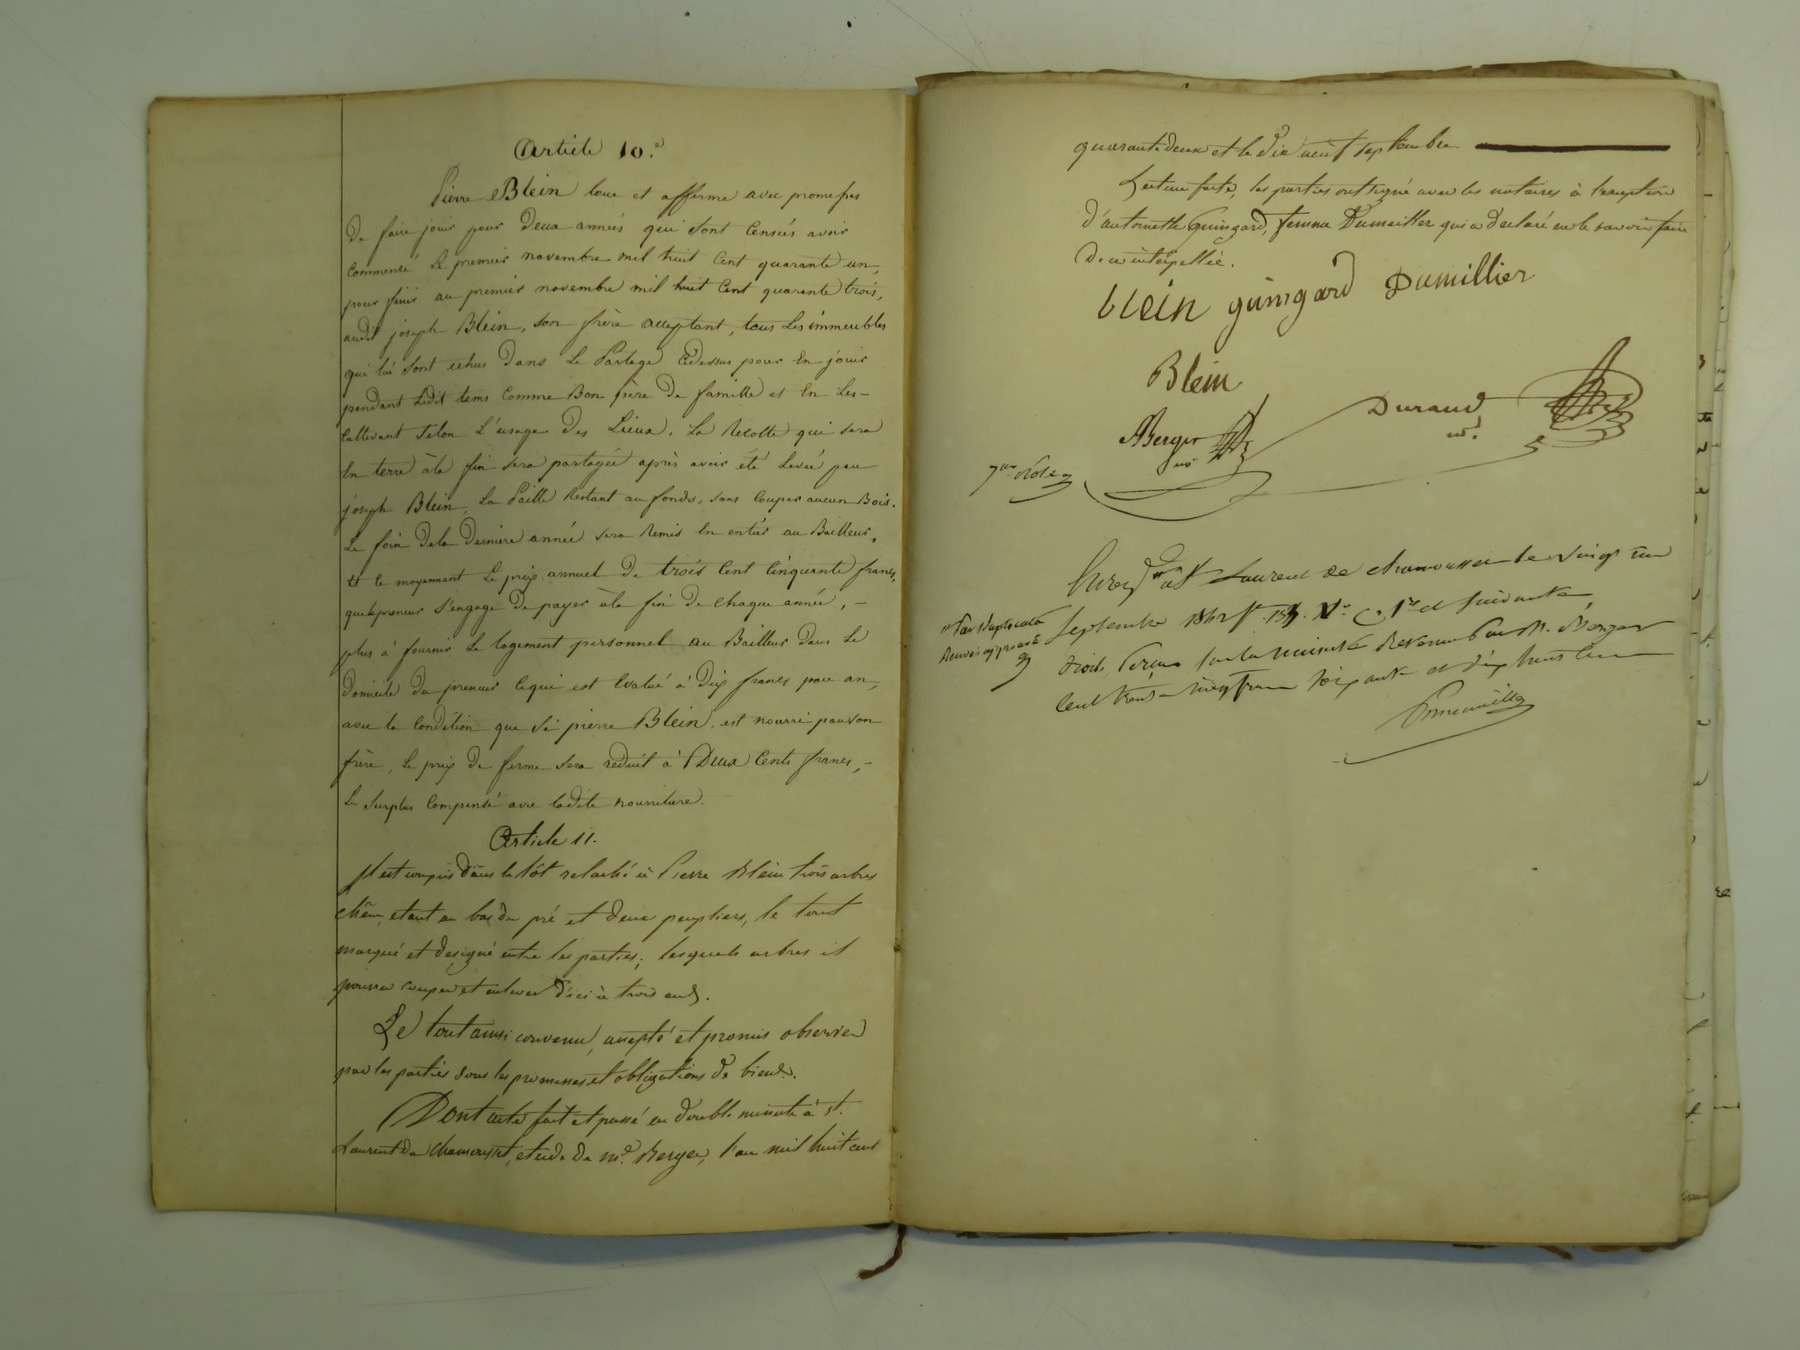 Article 10.e
Pierre Blein loue et afferme avec promesses
De faire jouir pour Deux années qui sont Censées avoir
commencé Le premier novembre mil huit Cent quarante un,
pour finir au premier novembre mil huit Cent quarante trois,
audit joseph Blein, son frère acceptant, tous Les immeubles
qui lui sont echus Dans Le Partage Cidessus pour En jouir
pendant Ledit tems Comme Bon père De famille et En Les
Cultivant Selon L'usage Des Lieux. La Recolte qui sera
En terre àla fin sera partagée après avoir été Levée par
joseph Blein, La Paille Restant au fonds, sans Couper aucun Bois.
Le foin Dela Dernière année sera Remis En entier au Bailleur,
et ce moyennant Le prix annuel De trois Cent Cinquante francs,
que le preneur s'engage De payer àla fin De Chaque année,
plus à fournir Le logement personnel au Bailleur Dans Le
Domicile Du preneur Cequi est Evalué à Dix francs par an,
avec la Condition que Si pierre Blein, est nourri par son
frère, Le prix De ferme sera réduit à Deux Cents francs,
Le Surplus Compensé avec ladite nourriture.
Article 11.
Il est compris Dans le lôt relaché à Pierre Blein trois arbres
chêne, etant au bas Du pré et Deux peupliers, le tout
marqué et designé entre les parties; lesquels arbres il
pourra couper et enlever D'ici à trois ans.
Le tout ainsi convenu, accepté et promis observer
par les parties sous les promesses et obligations De biens.
Dont acte fait et passé en Double minute à St.
Laurent De Chamousset, etude De Me. Berger, l'an mil huit cent
quarante Deux et le Dix neuf septembre
Lecture faite, les parties ont signé avec les notaires à l'exception
D'antoinette Guingard, femme Dumillier qui a Declaré ne le savoir faire
De ce interpellée.
blein guingard Dumillier
Blein
Berger Durand
no. no.
7me Role
Enregé à St Laurent de chamousset le vingt un
Septembre 1842 fo 153 Vo C. 1re et suivantes,
par duplicata
Renvoi approuvé
droits perçus sur la minute Retenue par Me. Berger
Cent trente cinq francs soixante et dix huit cen